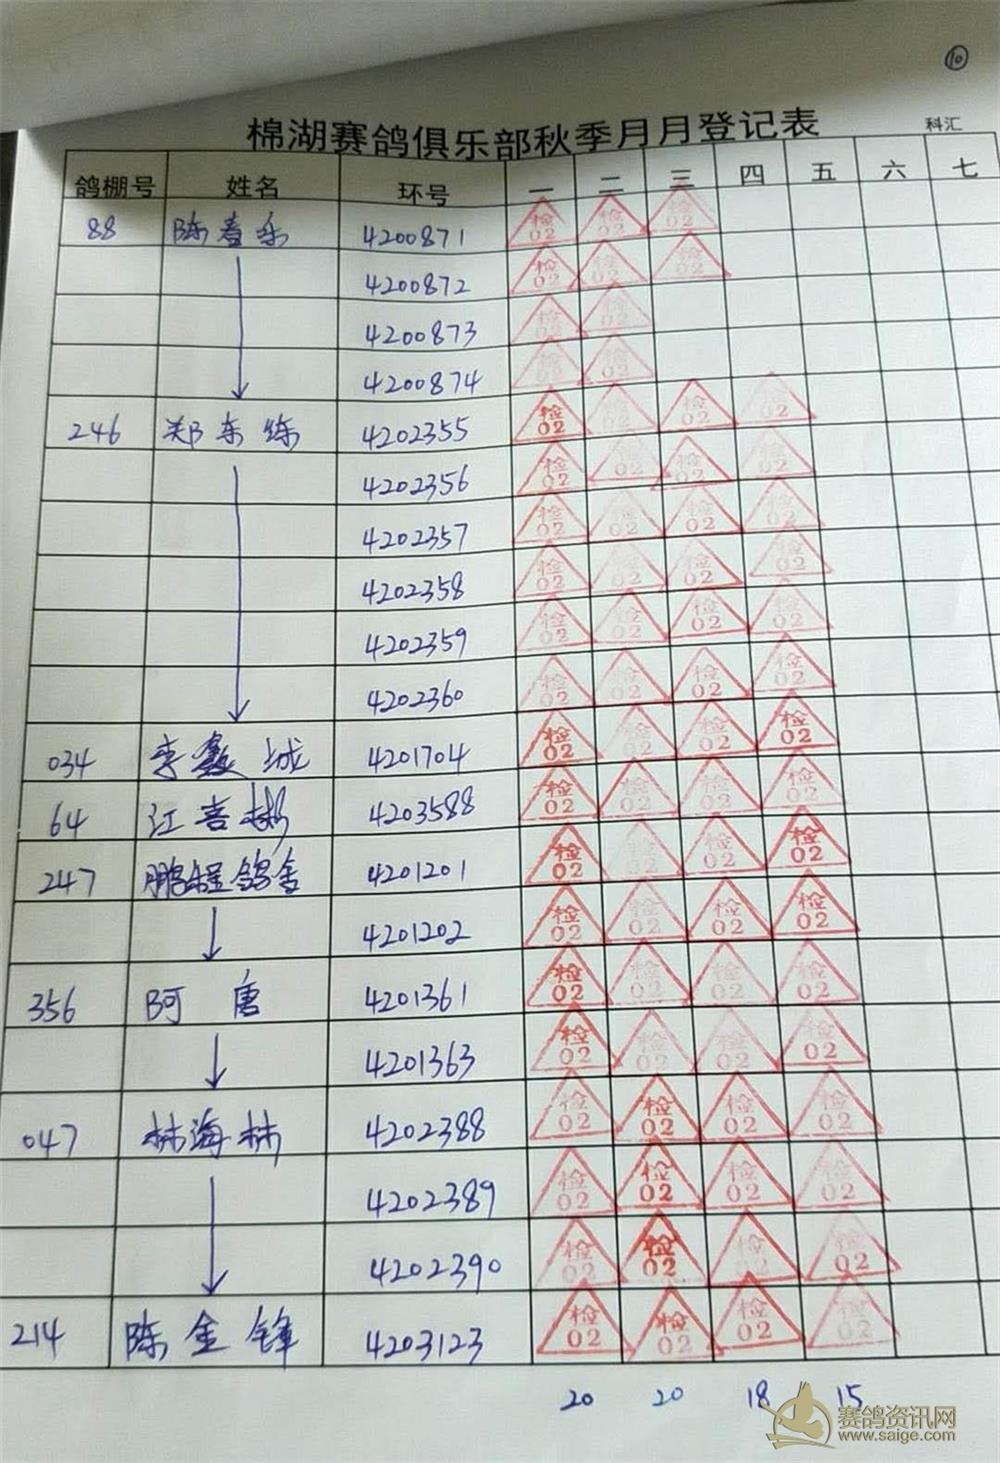 ⑩
棉湖赛鸽俱乐部秋季月月登记表
科汇
鸽棚号 姓名 环号 一 二 三 四 五 六 七
88 陈春乐 4200871 检02 检02 检02
4200872 检02 检02 检02
4200873 检02 检02
4200874 检02 检02
246 郑东练 4202355 检02 检02 检02 检02
4202356 检02 检02 检02 检02
4202357 检02 检02 检02 检02
4202358 检02 检02 检02 检02
4202359 检02 检02 检02 检02
4202360 检02 检02 检02 检02
034 李鑫城 4201704 检02 检02 检02 检02
64 江喜彬 4203588 检02 检02 检02 检02
247 鹏程鸽舍 4201201 检02 检02 检02 检02
4201202 检02 检02 检02 检02
356 阿唐 4201361 检02 检02 检02 检02
4201363 检02 检02 检02 检02
047 林海林 4202388 检02 检02 检02 检02
4202389 检02 检02 检02 检02
4202390 检02 检02 检02 检02
214 陈金锋 4203123 检02 检02 检02 检02
20 20 18 15
赛鸽资讯网
www.saige.com